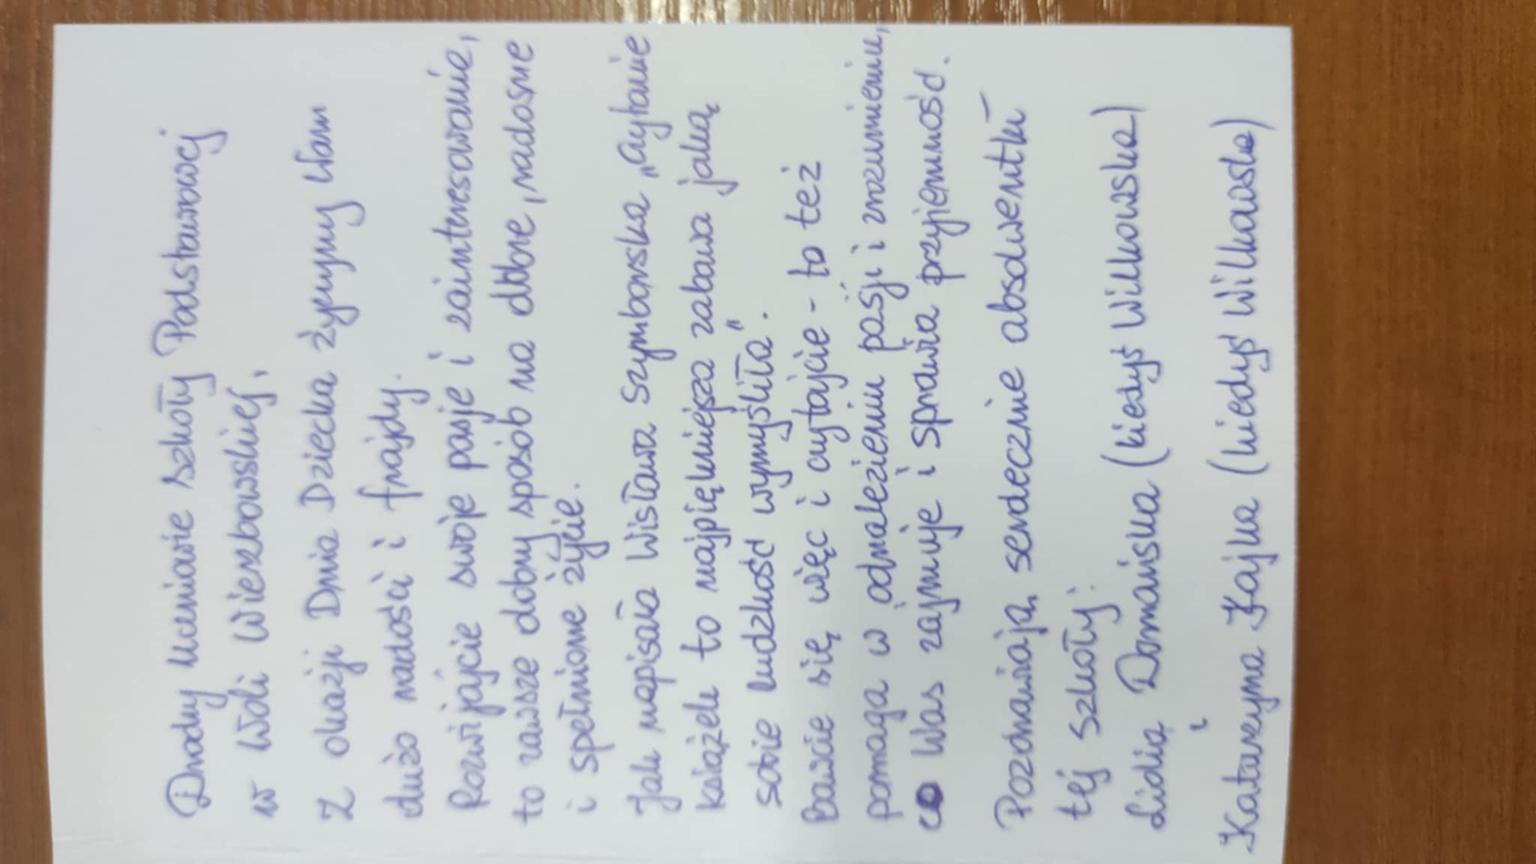 Drodzy Uczniowie Szkoły Podstawowej
w Woli Wierzbowskiej,
z okazji Dnia Dziecka życzymy Wam
dużo radości i frajdy.
Rozwijajcie swoje pasje i zainteresowania,
to zawsze dobry sposób na dobre, radosne
i spełnione życie.
Jak napisała Wisława Szymborska „Czytanie
książek to najpiękniejsza zabawa jaką
sobie ludzkość wymyśliła".
Bawcie się więc i czytajcie - to też
pomaga w odnalezieniu pasji i zrozumieniu,
co Was zajmuje i sprawia przyjemność.
Pozdrawiają serdecznie absolwentki
tej szkoły:
Lidia Domańska (kiedyś Wilkowska)
i
Katarzyna Kajka (kiedyś Wilkowska)